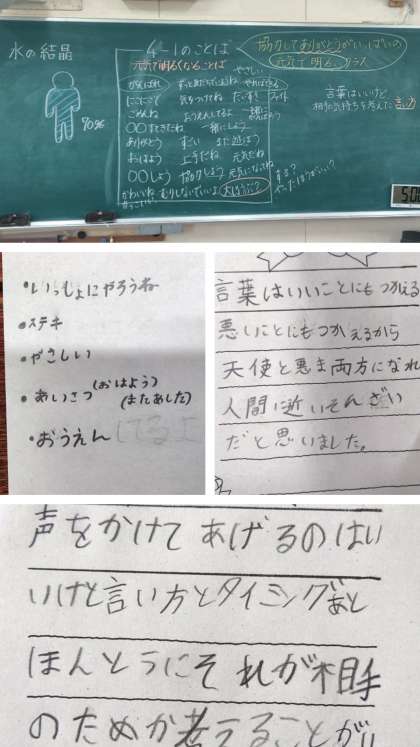 水の結晶
70%
4-1のことば
元気で明るくなることば
協力してありがとうがいっぱいの
元気で明るいクラス
やさしい
がんばれ
ずっと友だちでいようね
にこにこ
気をつけてね
だいすき
ごめんね
一緒に
〇〇すてきだね
一緒にしよう
ありがとう
すごい
また遊ぼう
おはよう
上手だね
元気だね
〇〇しよう
協力しよう
元気になってね
かわいいね
むりしないでいいよ
大じょうぶ?
言葉はいいけど
相手の気持ちを考えた言い方
・いっしょにやろうね
・ステキ
・やさしい
・あいさつ(おはよう)
(またあした)
・おうえんしてるよ
言葉はいいことにもつかえる
悪いことにもつかえるから
天使と悪ま両方になれ
人間に近いそんざい
だと思いました。
声をかけてあげるのはい
いけど言い方とタイミングあと
ほんとうにそれが相手
のためか考えることが